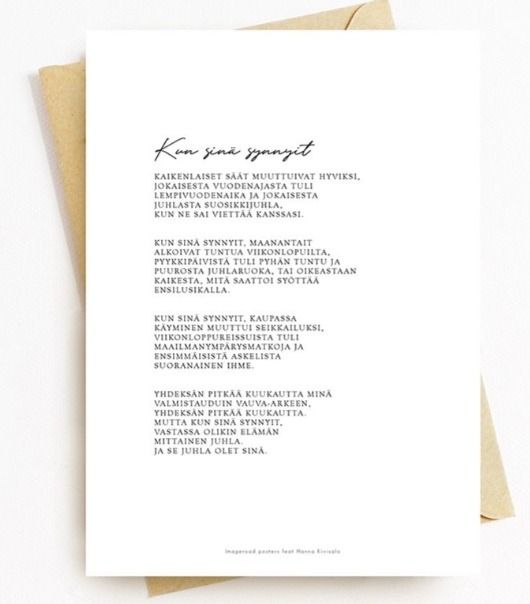 Kun sinä synnyit
KAIKENLAISET SÄÄT MUUTTUIVAT HYVIKSI,
JOKAISESTA VUODENAJASTA TULI
LEMPIVUODENAIKA JA JOKAISESTA
JUHLASTA SUOSIKKIJUHLA,
KUN NE SAI VIETTÄÄ KANSSASI.
KUN SINÄ SYNNYIT, MAANANTAIT
ALKOIVAT TUNTUA VIIKONLOPUILTA,
PYYKKIPÄIVISTÄ TULI PYHÄN TUNTU JA
PUUROSTA JUHLARUOKA, TAI OIKEASTAAN
KAIKESTA, MITÄ SAATTOI SYÖTTÄÄ
ENSILUSIKALLA.
KUN SINÄ SYNNYIT, KAUPASSA
KÄYMINEN MUUTTUI SEIKKAILUKSI,
VIIKONLOPPUREISSUISTA TULI
MAAILMANYMPÄRYSMATKOJA JA
ENSIMMÄISISTÄ ASKELISTA
SUORANAINEN IHME.
YHDEKSÄN PITKÄÄ KUUKAUTTA MINÄ
VALMISTAUDUIN VAUVA-ARKEEN,
YHDEKSÄN PITKÄÄ KUUKAUTTA.
MUTTA KUN SINÄ SYNNYIT,
VASTASSA OLIKIN ELÄMÄN
MITTAINEN JUHLA.
JA SE JUHLA OLET SINÄ.
Imageroad posters feat Hanna Kivisalo